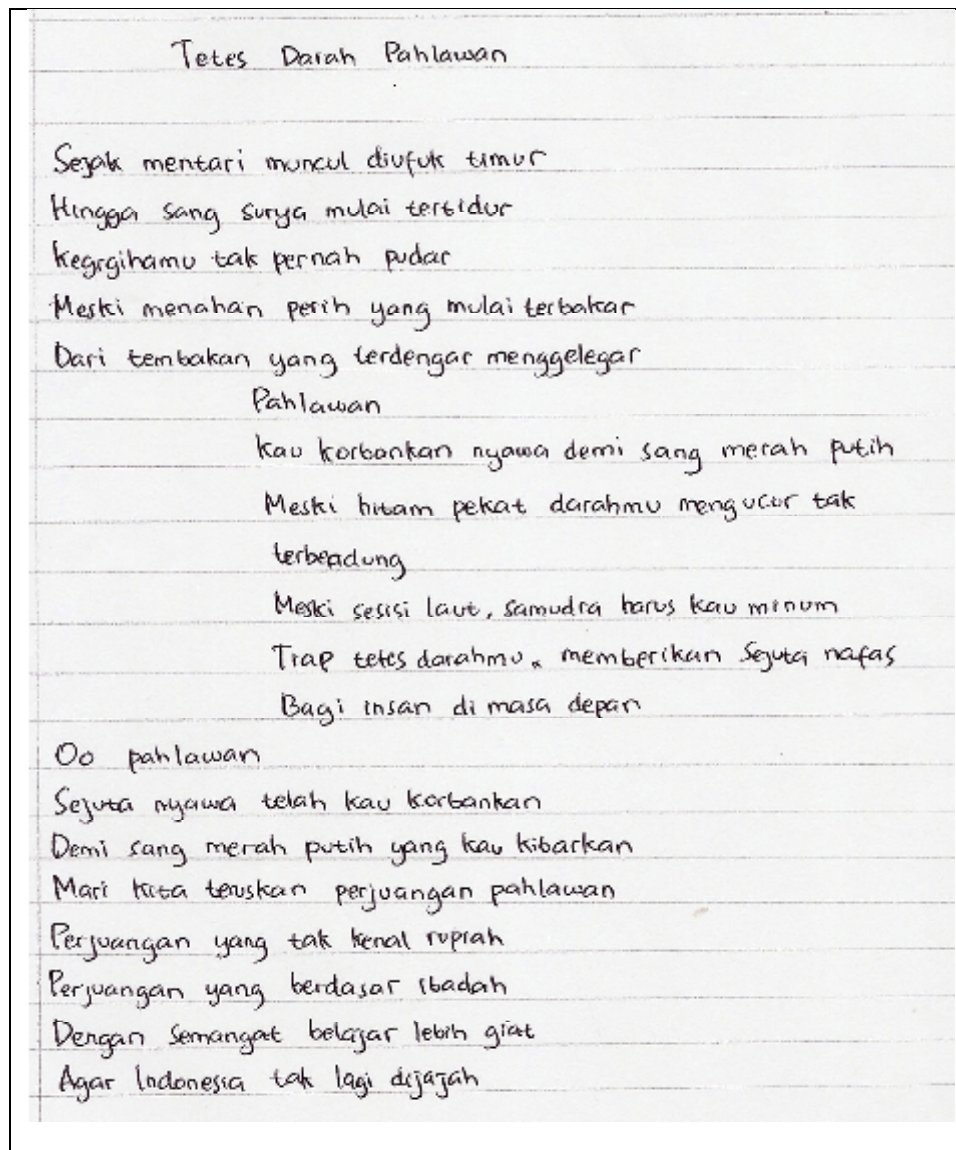 Tetes Darah Pahlawan
Sejak mentari muncul diufuk timur
Hingga sang surya mulai tertidur
Kegigihamu tak pernah pudar
Meski menahan perih yang mulai terbakar
Dari tembakan yang terdengar menggelegar
Pahlawan
Kau korbankan nyawa demi sang merah putih
Meski hitam pekat darahmu mengucur tak
terbendung
Meski sesisi laut, samudra harus kau minum
Tiap tetes darahmu memberikan Sejuta nafas
Bagi insan di masa depan
Oo pahlawan
Sejuta nyawa telah kau korbankan
Demi sang merah putih yang kau kibarkan
Mari kita teruskan perjuangan pahlawan
Perjuangan yang tak kenal rupiah
Perjuangan yang berdasar ibadah
Dengan Semangat belajar lebih giat
Agar Indonesia tak lagi dijajah